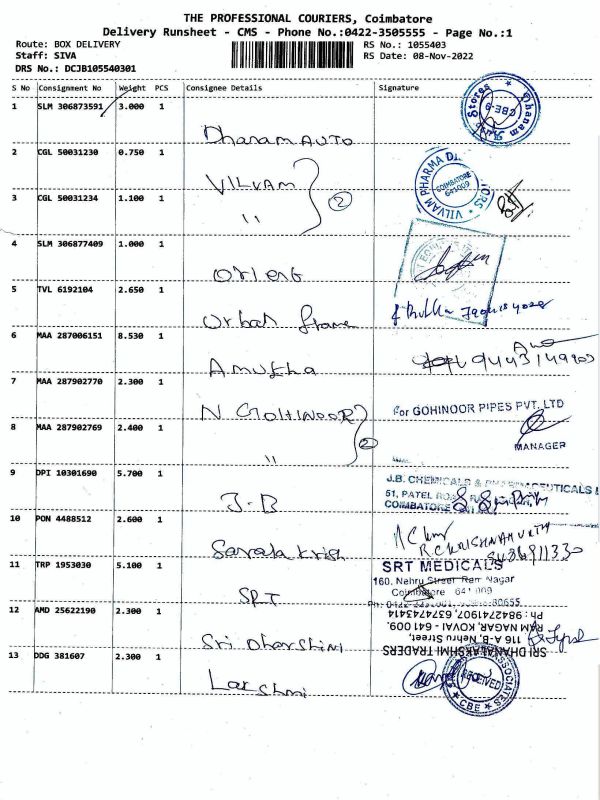 THE PROFESSIONAL COURIERS, Coimbatore
Delivery Runsheet - CMS - Phone No.:0422-3505555 - Page No.:1
Route: BOX DELIVERY RS No.: 1055403
Staff: SIVA RS Date: 08-Nov-2022
DRS No.: DCJB105540301
S No Consignment No Weight PCS Consignee Details Signature
1 SLM 306873591 3.000 1
Dhanam AUTO
Dhanam Stores CBE-9
2 CGL 50031230 0.750 1
VILVAM
VILVAM PHARMA COIMBATORE 641009
3 CGL 50031234 1.100 1
" 2
4 SLM 306877409 1.000 1
Orient
5 TVL 6192104 2.650 1
Urban frame
6 MAA 287006151 8.530 1
Amukha
7 MAA 287902770 2.300 1
N GOHINOOR
For GOHINOOR PIPES PVT. LTD
MANAGER
8 MAA 287902769 2.400 1
" 2
9 DPI 10301690 5.700 1
J-B
J.B. CHEMICALS & PHARMACEUTICALS
51, PATEL ROAD
COIMBATORE
10 PON 4488512 2.600 1
Sarala Krish
11 TRP 1953030 5.100 1
SRT
SRT MEDICALS
160, Nehru Street Ram Nagar
Coimbatore 641 009
12 AMD 25622190 2.300 1
Sri Dharshini
SRI DHANALAKSHMI TRADERS
116 A-B, Nehru Street,
RAM NAGAR, KOVAI - 641 009.
Ph : 9842741907, 6374743414
13 DDG 381607 2.300 1
Lakshmi
ASSOCIATES RECEIVED CBE